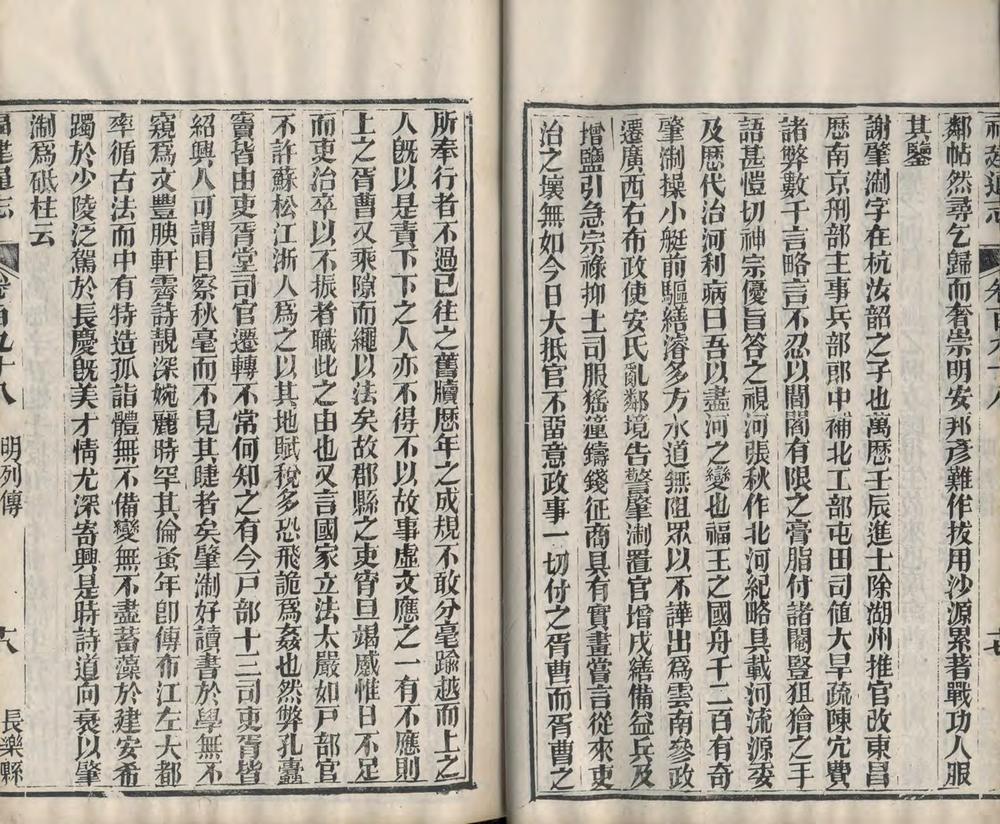 福建通志 卷百九十八
鄰帖然尋乞歸而奢崇明安邦彥難作拔用沙源累著戰功人服
其鑒
謝肇淛字在杭汝韶之子也萬歷壬辰進士除湖州推官改東昌
歷南京刑部主事兵部郎中補北工部屯田司值大旱疏陳冗費
諸弊數千言略言不忍以閭閻有限之膏脂付諸閹豎狙獪之手
語甚愷切神宗優旨答之視河張秋作北河紀略具載河流源委
及歷代治河利病曰吾以盡河之變也福王之國舟千二百有奇
肇淛操小艇前驅繕濬多方水道無阻眾以不譁出為雲南參政
遷廣西右布政使安氏亂鄰境告警肇淛置官增戍繕備益兵及
增鹽引急宗祿抑土司服猺獞鑄錢征商具有實畫嘗言從來吏
治之壞無如今日大抵官不畱意政事一切付之胥曹而胥曹之
所奉行者不過已往之舊牘歷年之成規不敢分毫踰越而上之
人既以是責下下之人亦不得不以故事虛文應之一有不應則
上之胥曹又乘隙而繩以法矣故郡縣之吏宵旦竭蹙惟日不足
而吏治卒以不振者職此之由也又言國家立法太嚴如戸部官
不許蘇松江浙人為之以其地賦稅多恐飛詭為姦也然弊孔蠹
竇皆由吏胥堂司官遷轉不常何知之有今戸部十三司吏胥皆
紹興人可謂目察秋毫而不見其睫者矣肇淛好讀書於學無不
窺為文豐腴軒霽詩靚深婉麗時罕其倫蚤年卽傳布江左大都
率循古法而中有特造孤詣體無不備變無不盡蓄藻於建安希
躅於少陵泛駕於長慶旣美才情尤深寄興是時詩道向衰以肇
淛為砥柱云
福建通志 卷百九十八 明列傳 六 長樂縣